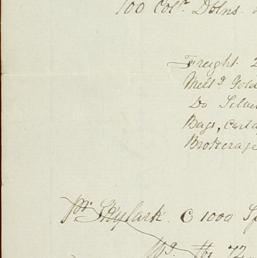 100 Col.^n Dolns.
Freight 2
Melt.^g Gold
Do Silve
Bags, Carta
Brokerage
Pr Skylark. C 1000 Sp